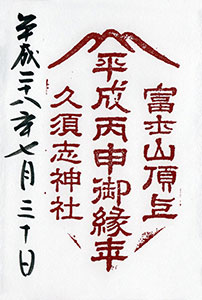 富士山頂上
平成丙申御縁年
久須志神社
平成二十八年七月三十日